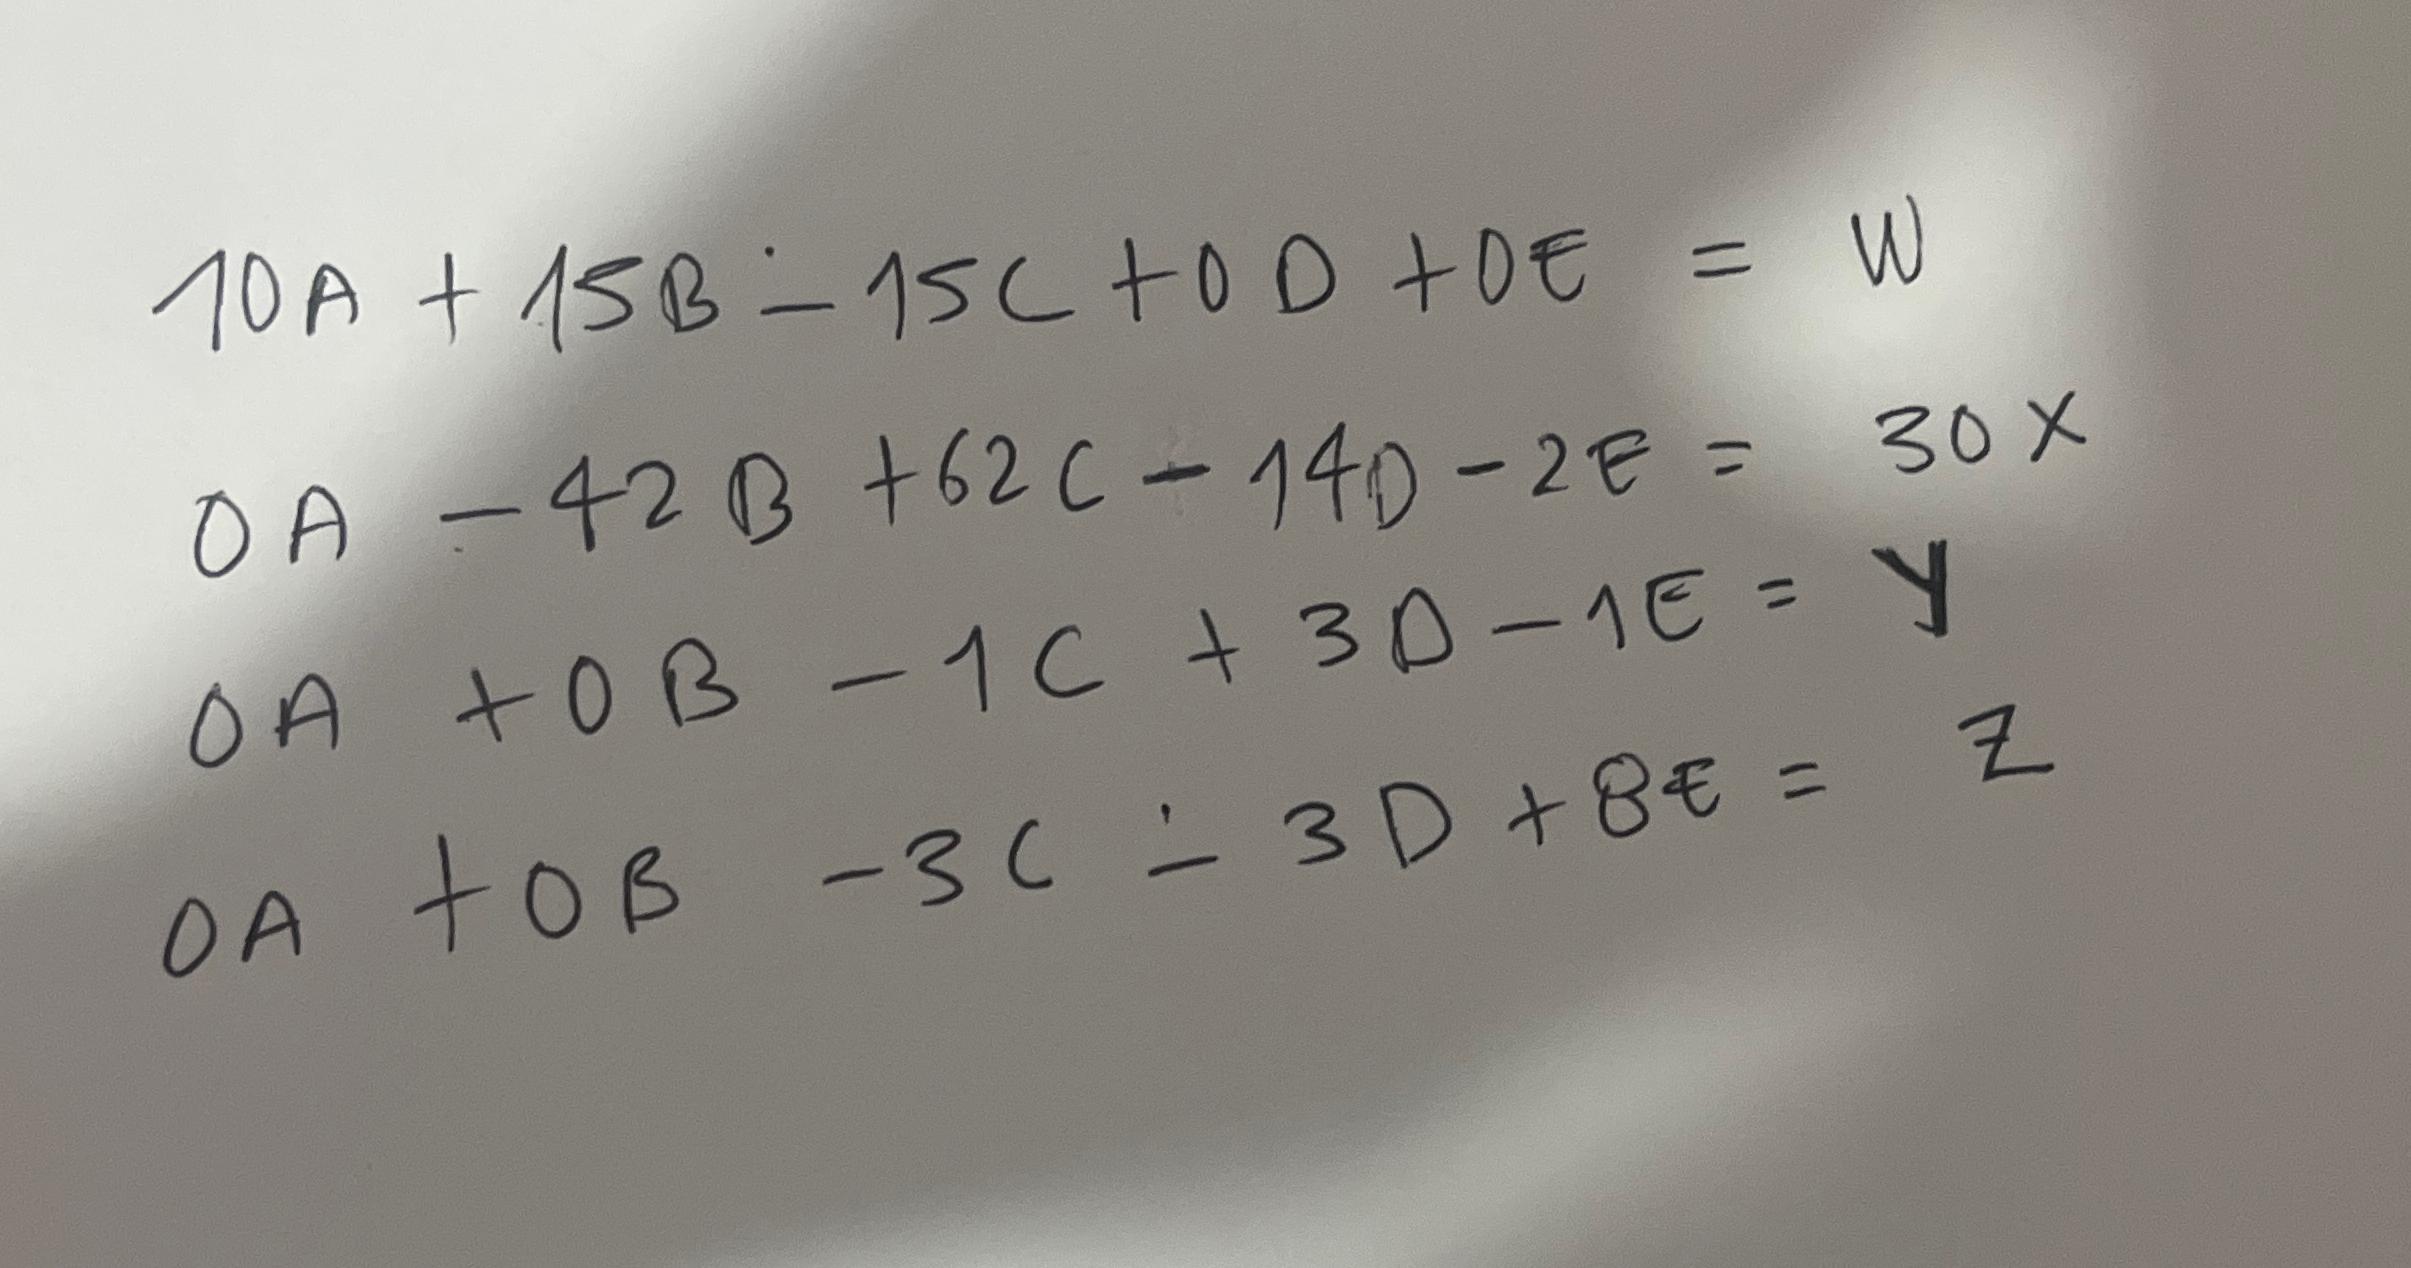 10A + 15B - 15C + 0D + 0E = W
0A - 42B + 62C - 14D - 2E = 30X
0A + 0B - 1C + 3D - 1E = Y
0A + 0B - 3C - 3D + 8E = Z